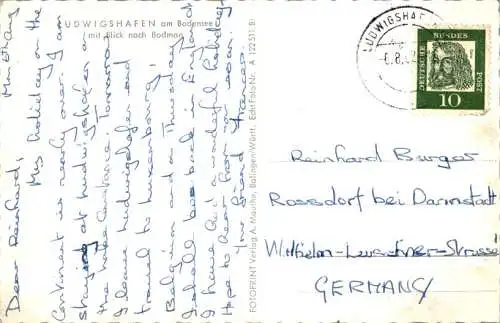 LUDWIGSHAFEN am Bodensee
mit Blick nach Bodman
Monday
Dear Reinhard,
My holiday on the
Continent is nearly over. I am
staying at Ludwigshafen on
the Lake Constance. Tomorrow
I leave Ludwigshafen and
travel to Luxembourg,
Belgium and on Thursday
I shall be back in England
I have had a wonderful holiday.
Hope to hear from you soon.
Your friend Frances.
FOTOPRINT Verlag A. Mauthe, Balingen-Württ. Echtfoto Nr. A 122 511 Bi
LUDWIGSHAFEN
DEUTSCHE BUNDES POST
10
Reinhard Burger
Rossdorf bei Darmstadt
Wilhelm-Leuschner-Strasse
GERMANY